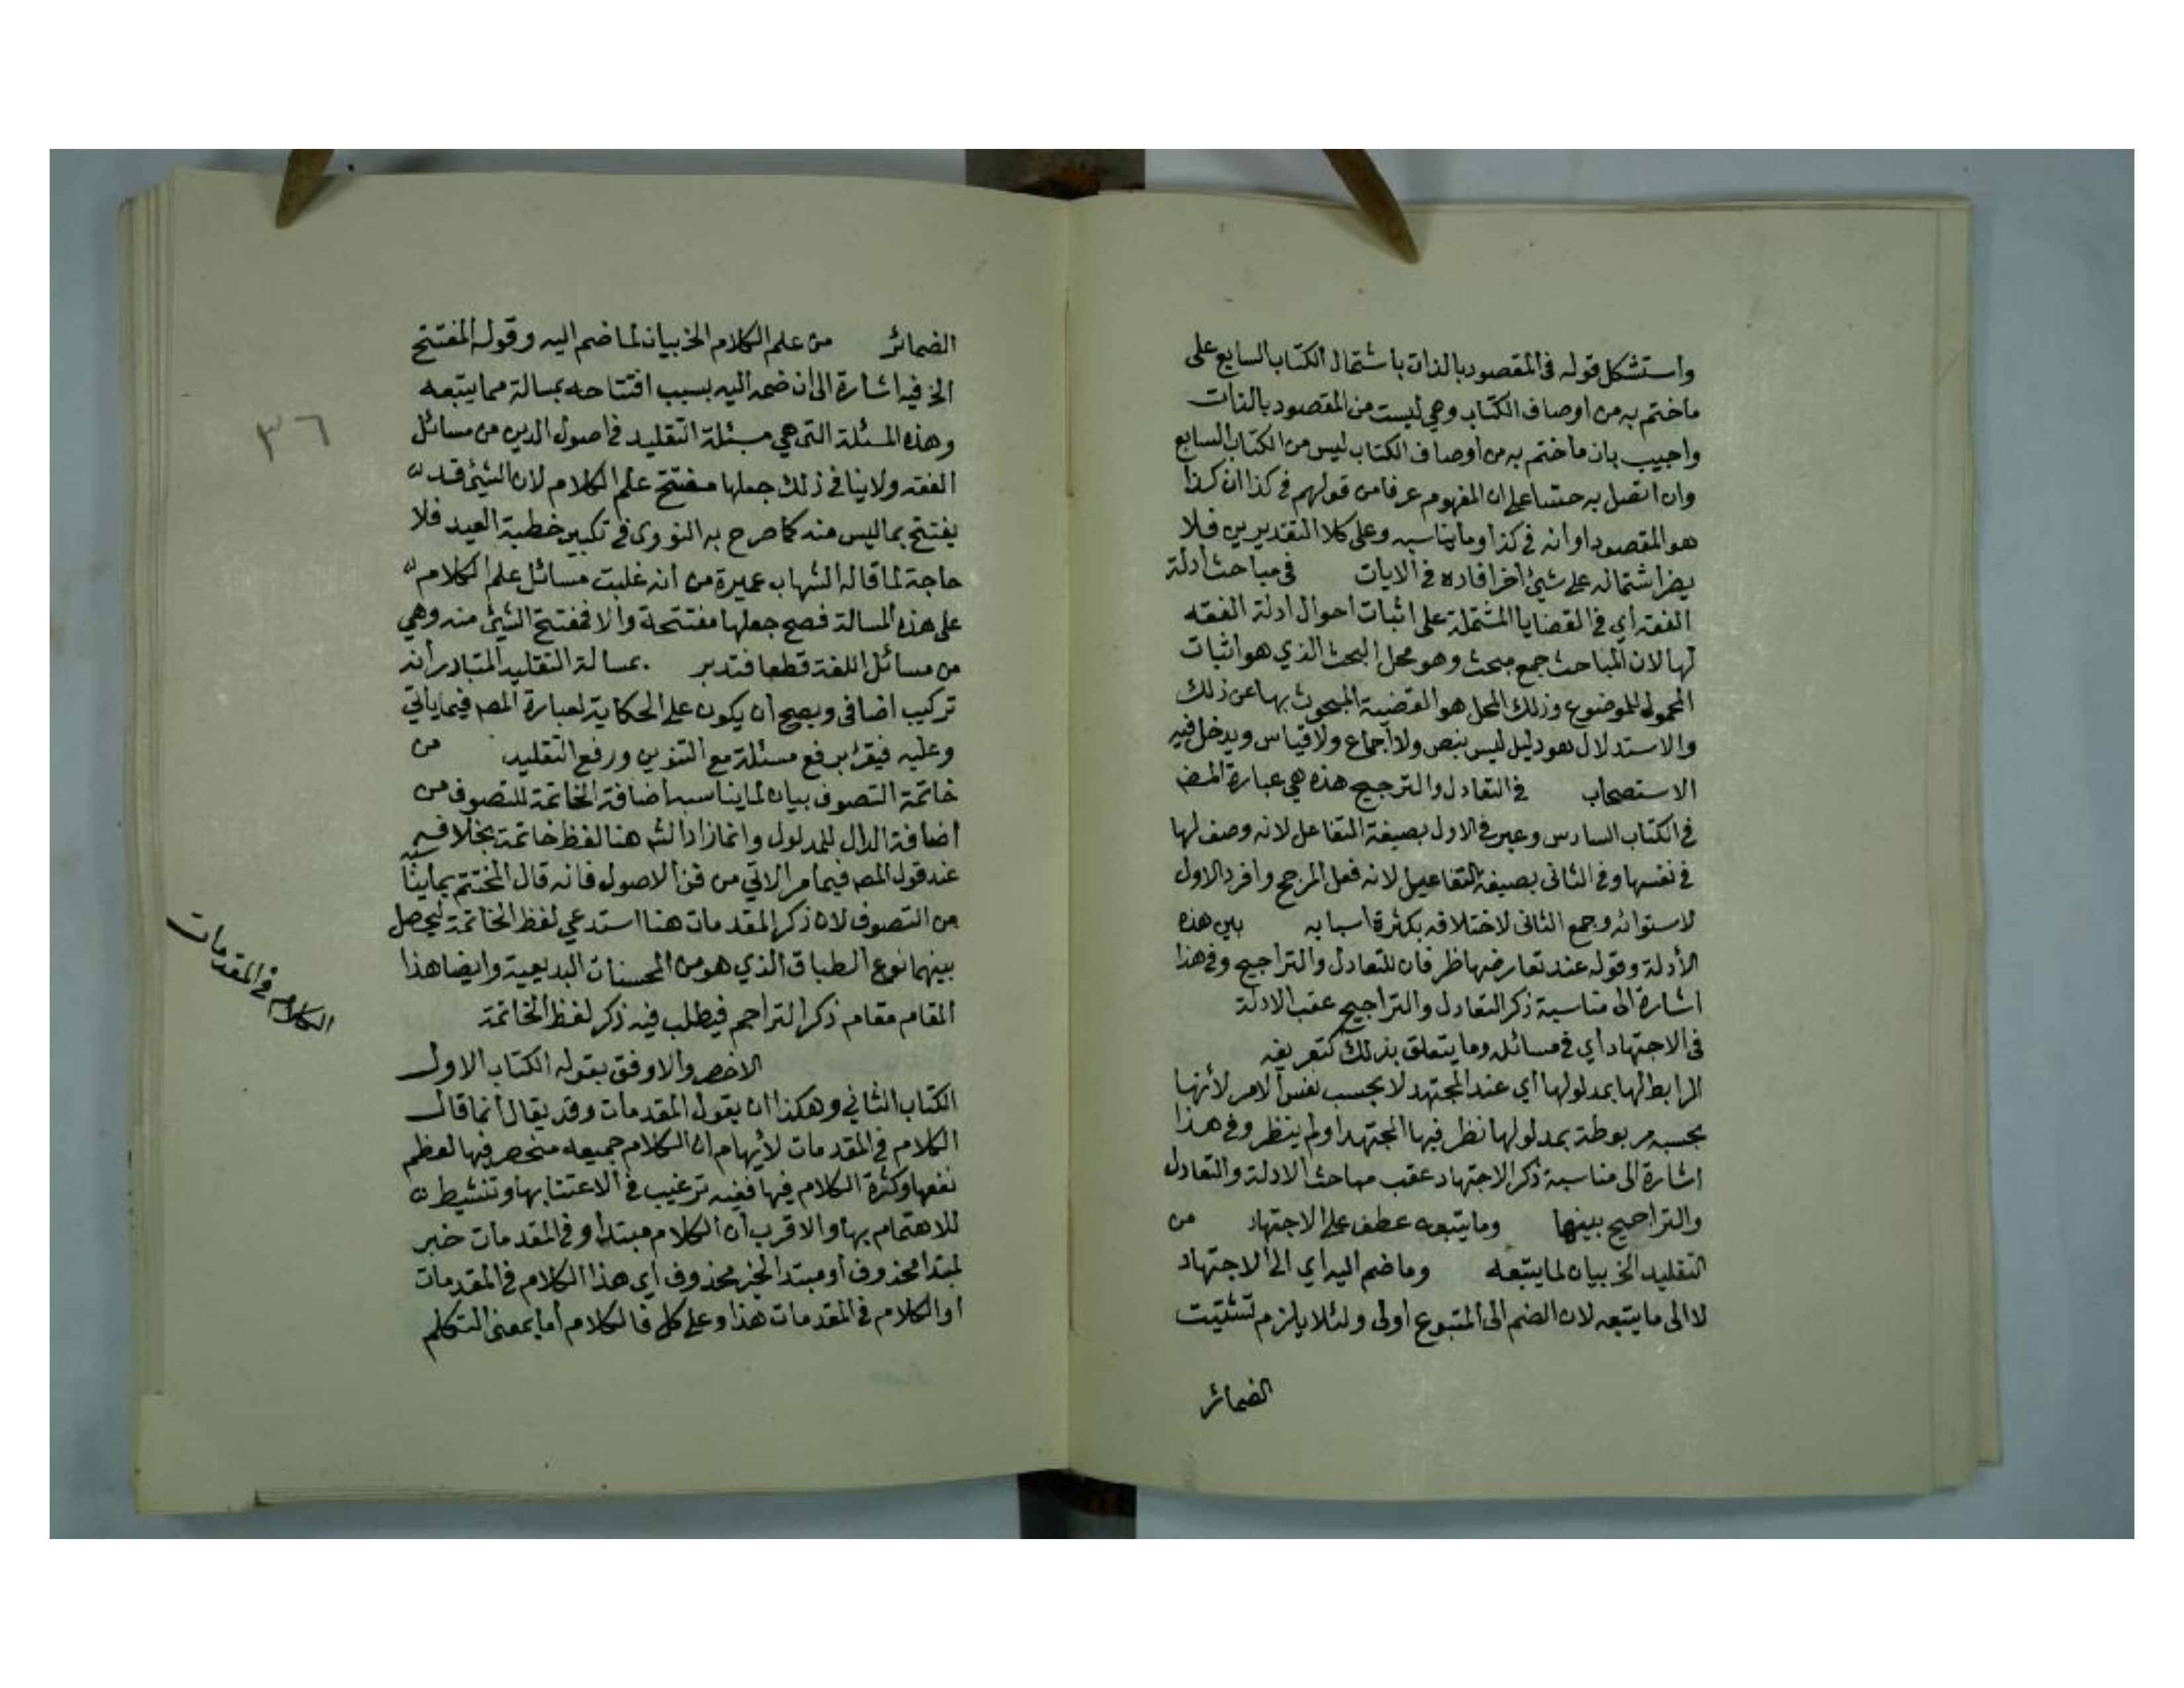 واستشكل قوله في المقصود بالذات باشتمال الكتاب السابع على
ماختم به من اوصاف الكتاب وهي ليست من المقصود بالذات
واجيب بان ماختم به من أوصاف الكتاب ليس من الكتاب السابع
وان اتصل به حسا على ان المفهوم عرفا من قولهم في كذا ان كذا
هو المقصود او انه في كذا وما يناسبه وعلى كلا التقديرين فلا
يضر اشتماله على شيئ أخر افاده في الايات في مباحث أدلة
الفقه أي في القضايا المشتملة على اثبات احوال ادلة الفقه
لها لان المباحث جمع مبحث وهو محل البحث الذي هو اثبات
المحمول للموضوع وذلك المحل هو القضية المبحوث بها عن ذلك
والاستدلال هو دليل ليس بنص ولا أجماع ولا قياس ويدخل فيه
الاستصحاب في التعادل والترجيح هذه هي عبارة المص
في الكتاب السادس وعبر في الاول بصيغة التفاعل لانه وصف لها
في نفسها وفي الثانى بصيغة التفاعيل لانه فعل المرجح وافرد الاول
لاستوائه وجمع الثانى لاختلافه بكثرة اسبابه بين هذه
الأدلة وقوله عند تعارضها ظرفان للتعادل والتراجيح وفي هذا
اشارة الى مناسبة ذكر التعادل والتراجيح عقب الادلة
في الاجتهاد أي في مسائله وما يتعلق بذلك كتعريفه
الرابط لها بمدلولها أي عند المجتهد لا بحسب نفس الامر لأنها
بحسبه مربوطة بمدلولها نظر فيها المجتهد او لم ينظر وفي هذا
اشارة الى مناسبة ذكر الاجتهاد عقب مباحث الادلة والتعادل
والتراجيح بينها وما يتبعه عطف على الاجتهاد من
التقليد الخ بيان لما يتبعه وما ضم اليه أي الى الاجتهاد
لا الى ما يتبعه لان الضم الى المتبوع اولى ولئلا يلزم تشتيت
الضمائر
الضمائر من علم الكلام الخ بيان لما ضم اليه وقوله المفتتح
الخ فيه اشارة الى ان ضمه اليه بسبب افتتاحه بمسالة مما يتبعه
وهذه المسئلة التى هي مسئلة التقليد في اصول الدين من مسائل
الفقه ولا ينافى ذلك جعلها مفتتح علم الكلام لان الشيئ قد
يفتتح بما ليس منه كما صرح به النووى في تكبير خطبة العيد فلا
حاجة لما قاله الشهاب عميرة من أنه غلبت مسائل علم الكلام
على هذه المسالة فصح جعلها مفتتحة والا فمفتتح الشيئ منه وهي
من مسائل اللغة قطعا فتدبر بمسالة التقليد المتبادر أنه
تركيب اضافى ويصح أن يكون على الحكاية لعبارة المص فيما يأتي
وعليه فيقرئ برفع مسئلة مع التنوين ورفع التقليد من
خاتمة التصوف بيان لما يناسبه اضافة الخاتمة للتصوف من
اضافة الدال للمدلول وانما زاد الش هنا لفظ خاتمة بخلافه
عند قول المص فيما مر الاتي من فن الاصول فانه قال المختتم بما يناسبه
من التصوف لان ذكر المقدمات هنا استدعي لفظ الخاتمة ليحصل
بينهما نوع الطباق الذي هو من المحسنات البديعية وايضا هذا
المقام مقام ذكر التراجم فيطلب فيه ذكر لفظ الخاتمة
الاخصر والاوفق بقوله الكتاب الاول
الكتاب الثاني وهكذا ان يقول المقدمات وقد يقال أنما قال
الكلام في المقدمات لأيهام ان الكلام جميعه منحصر فيها لعظم
نفعها وكثرة الكلام فيها ففيه ترغيب في الاعتنا بها وتنشيط
للاهتمام بها والاقرب أن الكلام مبتدأ وفي المقدمات خبر
لمبتدا محذوف أو مبتدا لخبر محذوف أي هذا الكلام في المقدمات
أو الكلام في المقدمات هذا وعلى كل فالكلام أما بمعنى التكلم
٣٦
الكلام في المقدمات